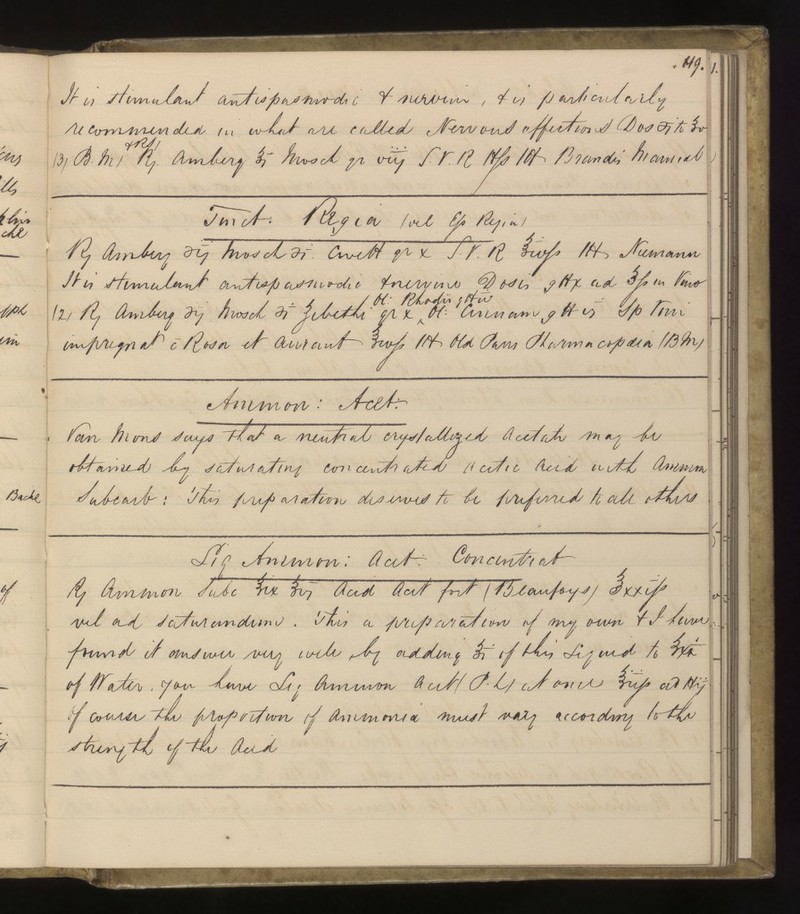 119.
It is stimulant antispasmodic & nervine, & is particularly
recommended in what are called Nervous affections Dos ʒi to ʒv
(3) B.M, & RS, ℞ Amberg ʒi Mosch gr viij S.V.R ℔ſs ℔ Brandis Manual
Tinct: Regia (vel Ess Regia)
℞ Amberg ℈ij Mosch ℈i Civett gr x S V. R ℥ivſs ℔ Niemann
It is stimulant antispasmodic & nervine Dosis gtt x ad ʒſs in Vino
(2) ℞ Amberg ℈ij Mosch ℈i Zibethi gr x Ol: Rhodii gtt Ol: Cinnam gtt vi Sp Vini
impregnat c̄ Rosa et Aurant ℥ivſs ℔ Old Paris Pharmacopœia (B M)
Ammon: Acet:
Van Mons says that a neutral crystallized Acetate may be
obtained by saturating concentrated Acetic Acid with Ammon
Subcarb: This preparation deserves to be preferred to all others
Liq Ammon: Acet: Concentrat
℞ Ammon Subc ℥ix ʒvj Acid Acet fort (Beaufoys) ℥xxiſs
vel ad saturandum. This is a preparation of my own & I have
found it answer very well, by adding ʒi of this Liquid to
of Water. you have Liq Ammon Acet (P. L) at once
Of course the proportion of Ammonia must vary according to the
strength of the Acid